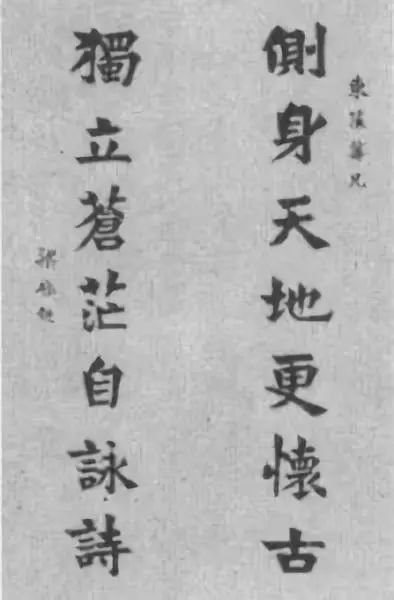 東蓀兄
側身天地更懷古
獨立蒼茫自詠詩
梁啟超